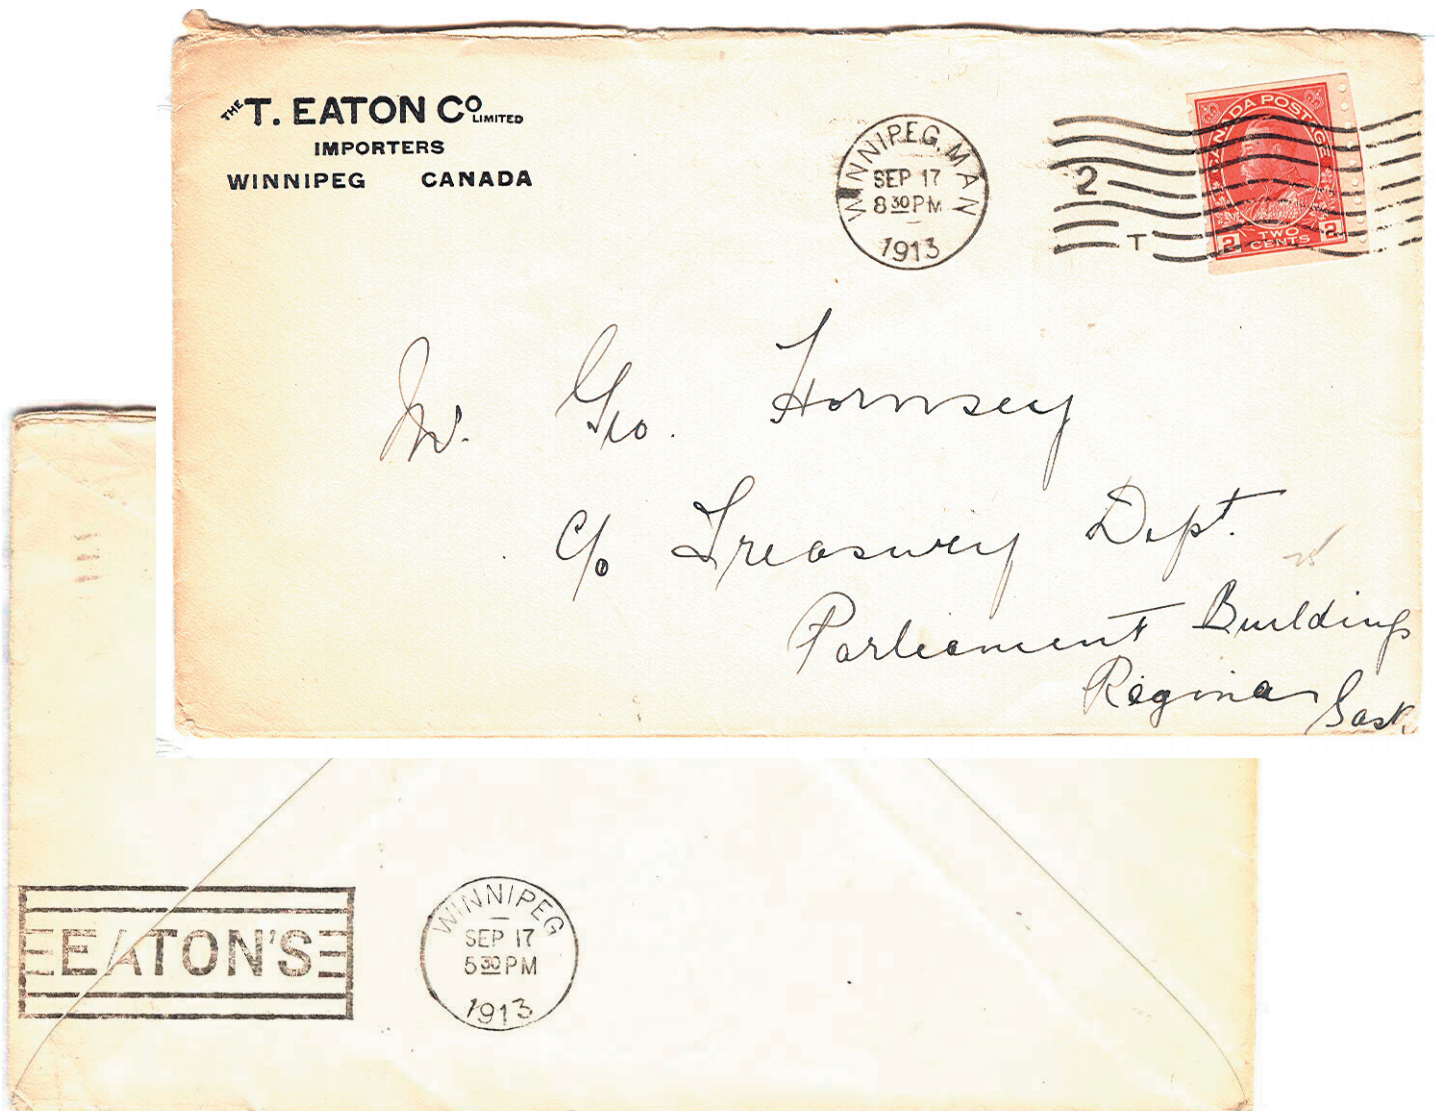 THE T. EATON CO LIMITED
IMPORTERS
WINNIPEG CANADA
WINNIPEG, MAN
SEP 17
8 30 PM
1913
2
T
CANADA POSTAGE
2 TWO CENTS 2
Mr. Geo. Hornsey
c/o Treasury Dept.
Parliament Buildings
Regina
Sask.
EATON'S
WINNIPEG
SEP 17
5 30 PM
1913